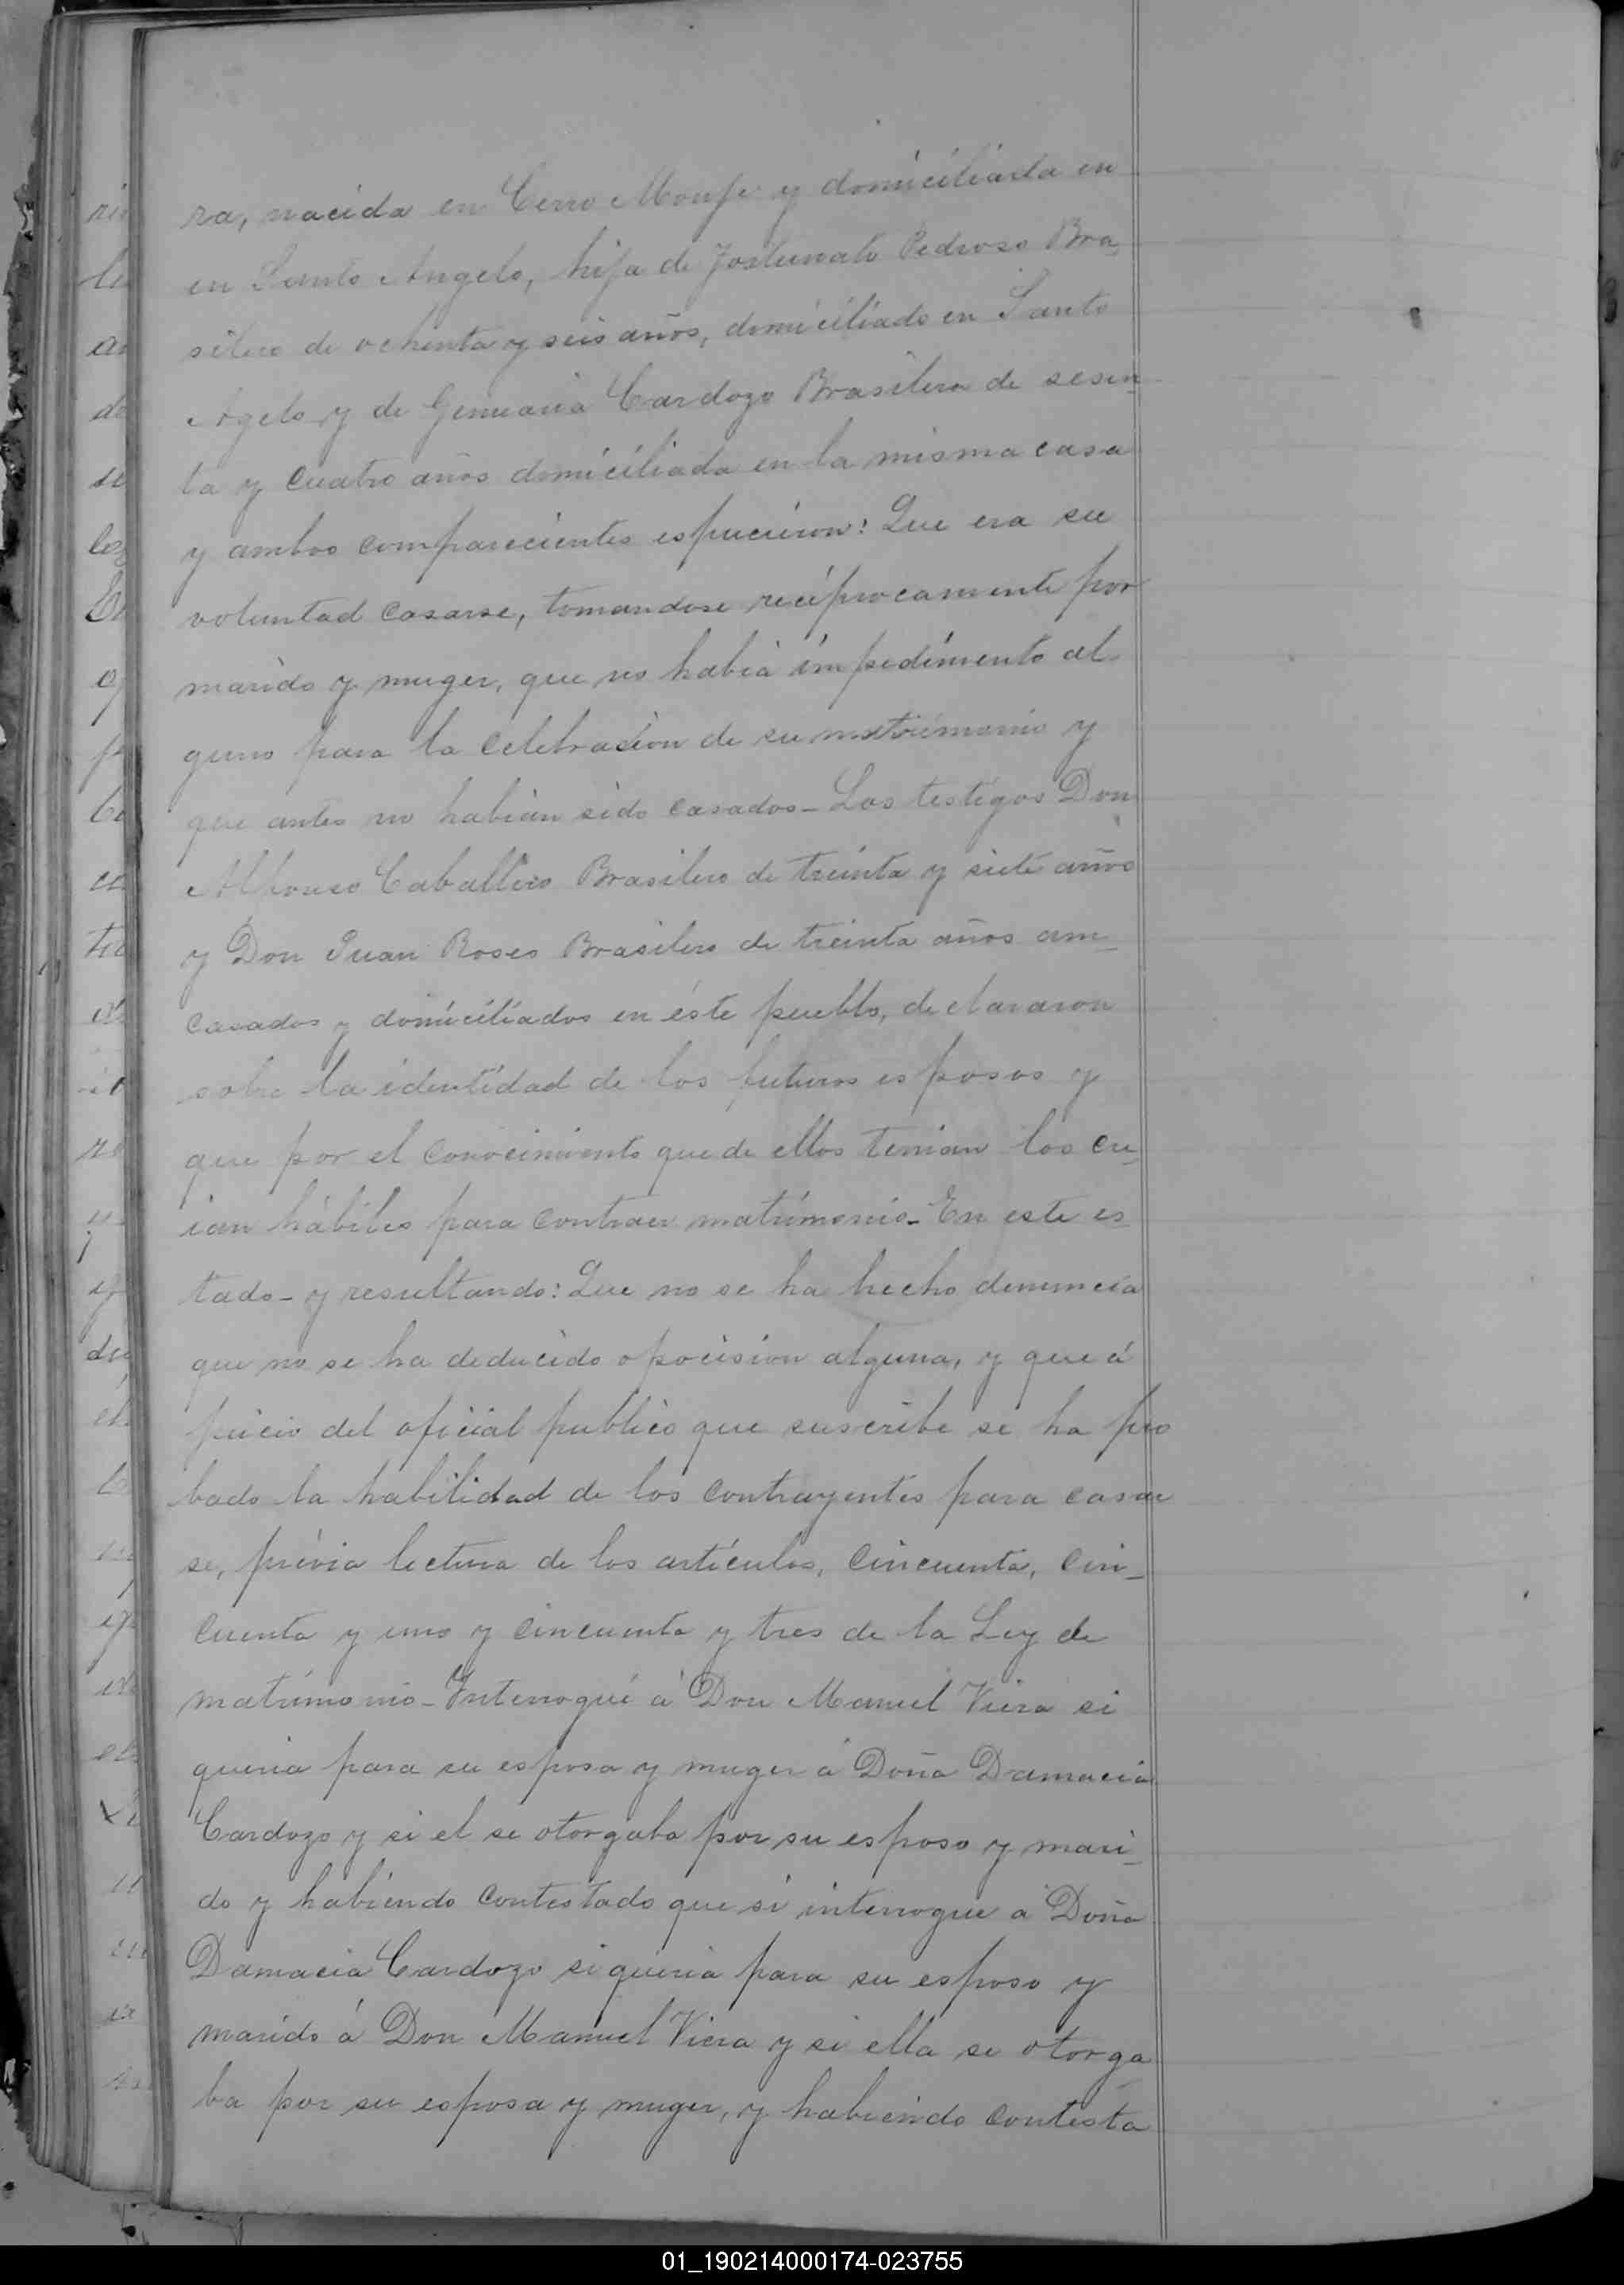 ra, nacida en Cerro Monje y domiciliada en
en Santo Angelo, hija de Fortunato Pedroso Bra_
silero de ochenta y seis años, domiciliado en Santo
Agelo y de Genuaria Cardozo Brasilera de sesen_
ta y cuatro años domiciliada en la misma casa
y ambos comparecientes espucieron: Que era su
voluntad casarse, tomandose recíprocamente por
marido y muger, que no habia impedimento al
guno para la celebracion de su matrimonio y
que antes no habian sido casados_ Los testigos Don
Alfonso Caballero Brasilero de treinta y siete años
y Don Juan Roses Brasilero de treinta años am_
casados y domiciliados en éste pueblo, declararon
sobre la identidad de los futuros esposos y
que por el conocimiento que de ellos tenian los cre_
ian hábiles para contraer matrimonio_ En este es
tado_ y resultando: Que no se ha hecho denuncia
que no se ha deducido opocision alguna, y que á
juicio del oficial publico que suscribe se ha pro
bado la habilidad de los contrayentes para casar
se, prévia lectura de los artículos, cincuenta, cin_
cuenta y uno y cincuenta y tres de la Ley de
matrimonio_ Interrogué á Don Manuel Viera si
queria para su esposa y muger á Doña Damacia
Cardozo y si el se otorgaba por su esposo y mari_
do y habiendo contestado que si interrogue a Doña
Damacia Cardozo si queria para su esposo y
marido á Don Manuel Viera y si ella se otorga
ba por su esposa y muger, y habiendo contesta
01_190214000174-023755